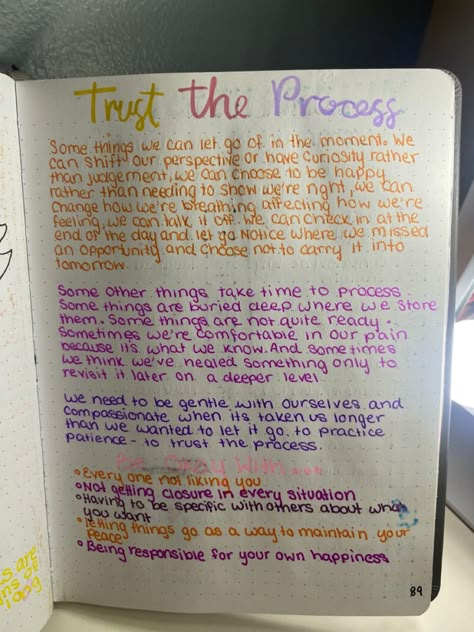 Trust the Process
Some things we can let go of in the moment. We
can shift our perspective or have curiosity rather
than judgement, we can choose to be happy
rather than needing to show we're right, we can
change how we're breathing affecting how we're
feeling, we can talk it off. We can check in at the
end of the day and let go Notice where we missed
an opportunity and choose not to carry it into
tomorrow.
Some other things take time to process.
Some things are buried deep where we store
them. Some things are not quite ready.
Sometimes we're comfortable in our pain
because its what we know. And sometimes
we think we've healed something only to
revisit it later on a deeper level.
We need to be gentle with ourselves and
compassionate when its taken us longer
than we wanted to let it go. to practice
patience - to trust the process.
Be Okay With...
Every one not liking you
Not getting closure in every situation
Having to be specific with others about what
you want
letting things go as a way to maintain your
Peace
Being responsible for your own happiness
89